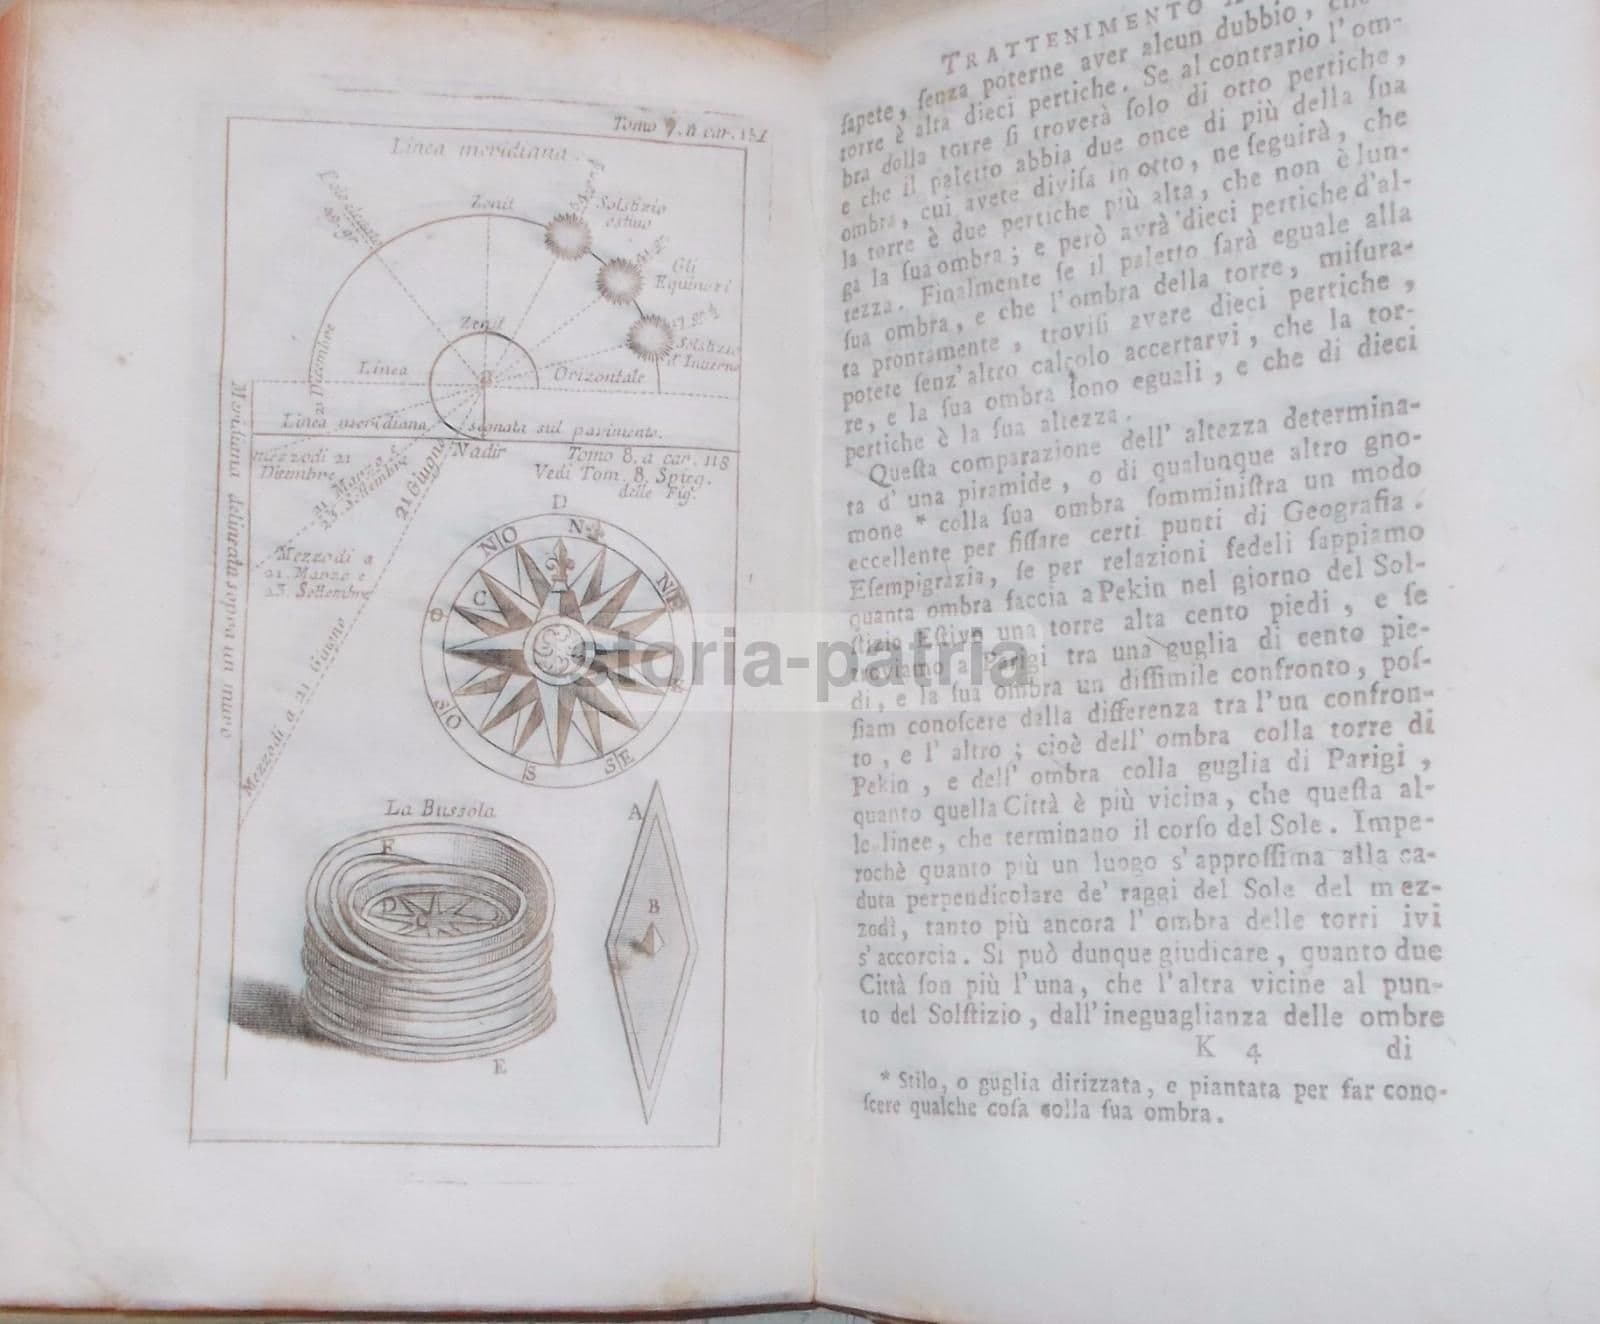 Tomo 7. a car. 151
Linea meridiana.
Zenit
Solstizio
estivo
Gli
Equinozi
Solstizio
d'Inverno
Polo elevato
49. gr.
21 Dicembre
Zenit
Linea
Orizontale
Linea meridiana segnata sul pavimento.
Nadir
Tomo 8. a car. 118
Vedi Tom. 8. Spieg.
delle Fig.
mezzodi 21
Dicembre
21. Marzo e
23. Settembre
21 Giugno
Mezzodi a
21. Marzo e
23. Settembre
Mezzodi a 21 Giugno
Meridiana delineata sopra un muro
D
N
NO
NE
O
C
SO
S
SE
La Bussola
F
D
C
E
A
B
storia-patria
TRATTENIMENTO
sapete, senza poterne aver alcun dubbio, che
torre è alta dieci pertiche. Se al contrario l'om-
bra dolla torre si troverà solo di otto pertiche,
e che il paletto abbia due once di più della sua
ombra, cui avete divisa in otto, ne seguirà, che
la torre è due pertiche più alta, che non è lun-
ga la sua ombra; e però avrà dieci pertiche d'al-
tezza. Finalmente se il paletto sarà eguale alla
sua ombra, e che l'ombra della torre, misura-
ta prontamente, trovisi avere dieci pertiche,
potete senz'altro calcolo accertarvi, che la tor-
re, e la sua ombra sono eguali, e che di dieci
pertiche è la sua altezza.
Questa comparazione dell' altezza determina-
ta d' una piramide, o di qualunque altro gno-
mone * colla sua ombra somministra un modo
eccellente per fissare certi punti di Geografia.
Esempigrazia, se per relazioni fedeli sappiamo
quanta ombra faccia a Pekin nel giorno del Sol-
stizio Estivo una torre alta cento piedi, e se
troviamo a Parigi tra una guglia di cento pie-
di, e la sua ombra un dissimile confronto, pos-
siam conoscere dalla differenza tra l'un confron-
to, e l' altro; cioè dell' ombra colla torre di
Pekin, e dell' ombra colla guglia di Parigi,
quanto quella Città è più vicina, che questa al-
le linee, che terminano il corso del Sole. Impe-
rochè quanto più un luogo s'approssima alla ca-
duta perpendicolare de' raggi del Sole del mez-
zodì, tanto più ancora l' ombra delle torri ivi
s'accorcia. Si può dunque giudicare, quanto due
Città son più l'una, che l'altra vicine al pun-
to del Solstizio, dall'ineguaglianza delle ombre
K 4 di
* Stilo, o guglia dirizzata, e piantata per far cono-
scere qualche cosa colla sua ombra.